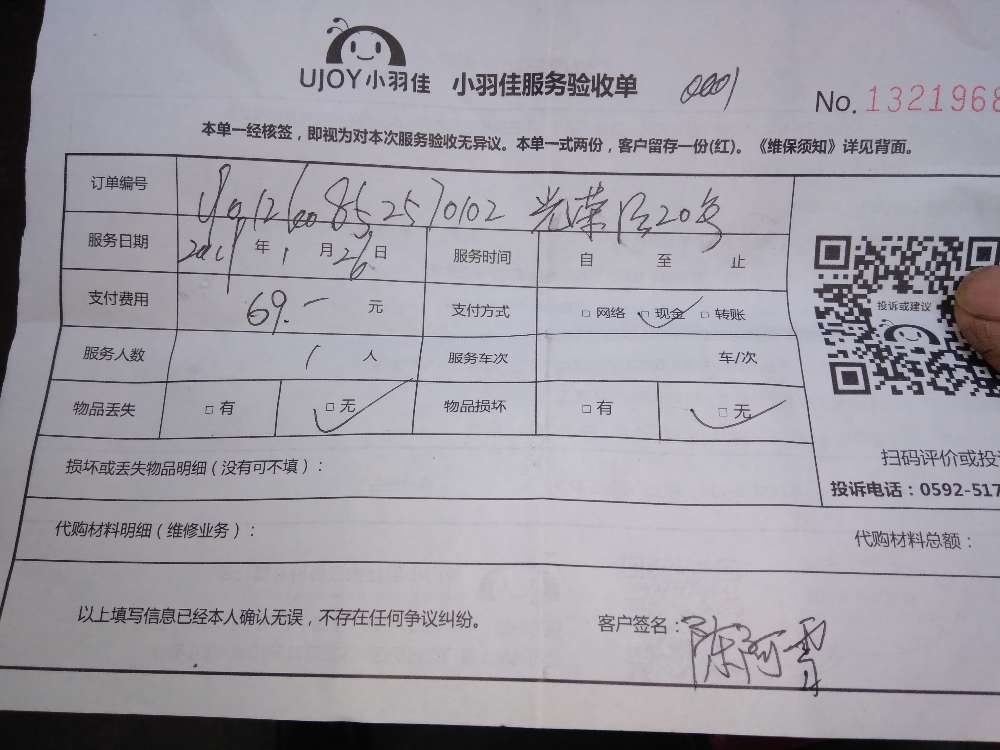 UJOY小羽佳 小羽佳服务验收单 0001
No. 1321968
本单一经核签，即视为对本次服务验收无异议。本单一式两份，客户留存一份(红)。《维保须知》详见背面。
订单编号 70102 光荣 20号
服务日期 年 1 月 26 日 服务时间 自 至 止
投诉或建议
支付费用 69.- 元 支付方式 □ 网络 □ 现金 □ 转账
服务人数 1 人 服务车次 车/次
物品丢失 □ 有 □ 无 物品损坏 □ 有 □ 无
扫码评价或投
损坏或丢失物品明细（没有可不填）：
投诉电话：0592-517
代购材料明细（维修业务）：
代购材料总额：
以上填写信息已经本人确认无误，不存在任何争议纠纷。
客户签名：陈阿雪